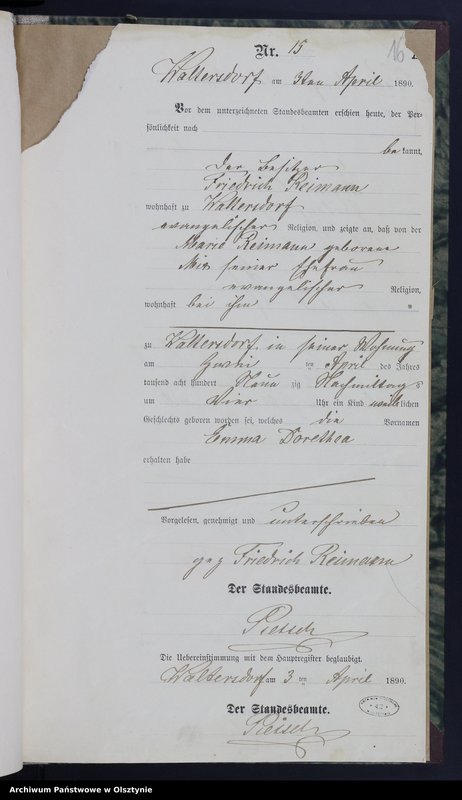 16
Nr. 15
Waltersdorf am 3ten April 1890.
Vor dem unterzeichneten Standesbeamten erschien heute, der Per-
sönlichkeit nach
be kannt,
der Besitzer
Friedrich Reimann
wohnhaft zu Waltersdorf
evangelischer Religion, und zeigte an, daß von der
Marie Reimann geborene
seiner Ehefrau
evangelischer Religion,
wohnhaft bei ihm
zu Waltersdorf in seiner Wohnung
am Zwei ten April des Jahres
tausend acht hundert Neun zig Nachmittags
um Vier Uhr ein Kind weib lichen
Geschlechts geboren worden sei, welches die Vornamen
Emma Dorethea
erhalten habe
Vorgelesen, genehmigt und unterschrieben
gez Friedrich Reimann
Der Standesbeamte.
Die Uebereinstimmung mit dem Hauptregister beglaubigt.
Waltersdorf am 3 ten April 1890.
Der Standesbeamte.
Archiwum Państwowe w Olsztynie